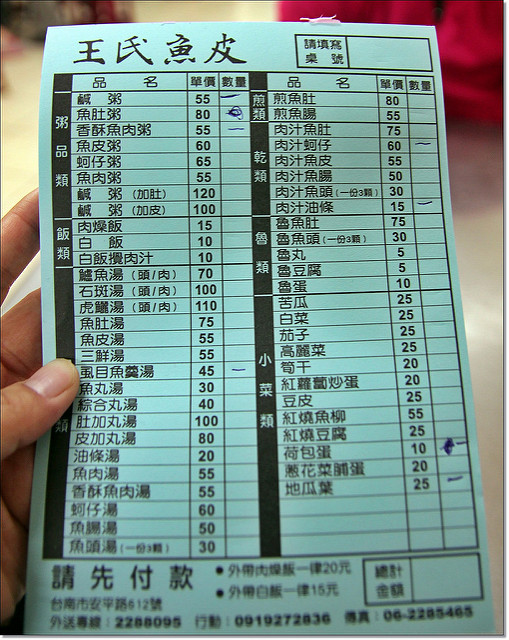 王氏魚皮
請填寫桌號
品名 單價 數量
粥品類
鹹粥 55
魚肚粥 80
香酥魚肉粥 55
魚皮粥 60
蚵仔粥 65
魚肉粥 55
鹹粥(加肚) 120
鹹粥(加皮) 100
飯類
肉燥飯 15
白飯 10
白飯攪肉汁 10
類
鱸魚湯(頭/肉) 70
石斑湯(頭/肉) 100
虎鱺湯(頭/肉) 110
魚肚湯 75
魚皮湯 55
三鮮湯 55
虱目魚羹湯 45
魚丸湯 30
綜合丸湯 40
肚加丸湯 100
皮加丸湯 80
油條湯 20
魚肉湯 55
香酥魚肉湯 55
蚵仔湯 60
魚腸湯 50
魚頭湯(一份3顆) 30
品名 單價 數量
煎類
煎魚肚 80
煎魚腸 55
乾類
肉汁魚肚 75
肉汁蚵仔 60
肉汁魚皮 55
肉汁魚腸 50
肉汁魚頭(一份3顆) 30
肉汁油條 15
魯類
魯魚肚 75
魯魚頭(一份3顆) 30
魯丸 5
魯豆腐 5
魯蛋 10
小菜類
苦瓜 25
白菜 25
茄子 25
高麗菜 25
筍干 20
紅蘿蔔炒蛋 20
豆皮 25
紅燒魚柳 55
紅燒豆腐 25
荷包蛋 10
蔥花菜脯蛋 20
地瓜葉 25
請先付款
•外帶肉燥飯一律20元
•外帶白飯一律15元
總計金額
台南市安平路612號
外送專線:2288095 行動:0919272836 傳真:06-2285465